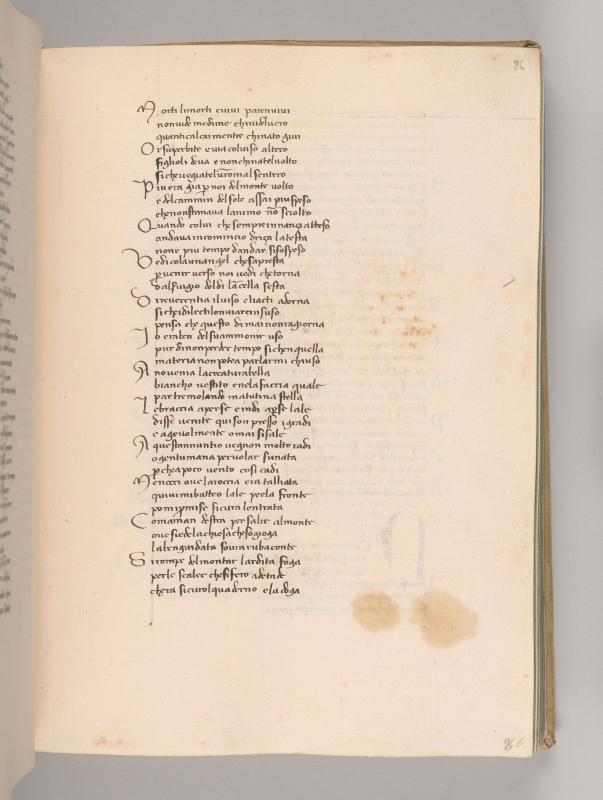 86
Morti li morti e i vivi paren vivi
non vide me di me chi vide l vero
quanti calcai mentre chinato givi
Or superbite e via col viso altero
figlioli deva e non chinate l volto
si che veggiate l vostro mal sentero
Piu era gia per noi del monte volto
e del camin del sole assai piu speso
che non stimava lanimo non sciolto
Quando colui che sempre innanzi atteso
andava incomincio driça la testa
non e piu tempo dandar si sospeso
Vedi cola un angel che sapresta
per venir verso noi vedi che torna
dal servigio del di lancella sesta
Di reverentia il viso e li acti adorna
si chei dilecti lo nviarci n suso
pensa che questo di mai non ragiorna
Io era ben del suo ammonir uso
pur di non perder tempo si chen quella
materia non potea parlarmi chiuso
A noi venia la creatura bella
biancho vestito e ne la faccia quale
par tremolando matutina stella
Le braccia aperse e indi aperse l ale
disse venite qui son presso i gradi
e agevolmente omai si sale
A questannuntio vegnon molto radi
o gente umana per volar su nata
perche a poco vento cosi cadi
Menocci ove la roccia era talliata
quivi mi batteo l ale per la fronte
poi mi promise sicura lentrata
Come a man destra per salire al monte
ove siede la chiesa che sogioga
la ben guidata sovra rubaconte
Si rompe del montar l ardita foga
per le scalee che si fero ad etade
chera sicuro l quaderno e la doga
86